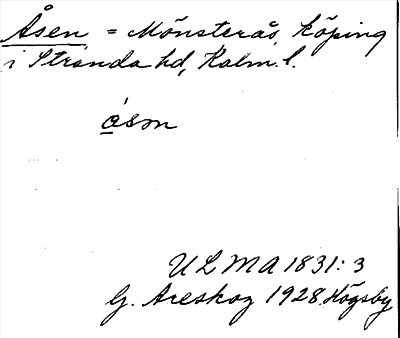 Åsen = Mönsterås köping
i Stranda hd, Kalm. l.
åsm
ULMA 1831:3
G. Areskog 1928. Högsby